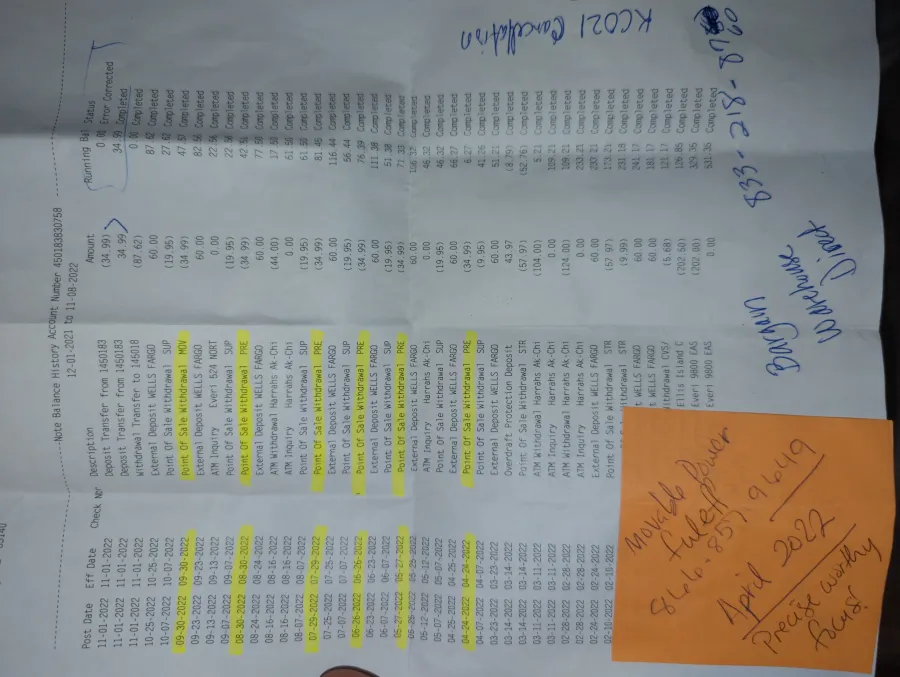 --Note Balance History Account Number 450183830758
12-01-2021 to 11-08-2022
Post Date Eff Date Check No Description Amount Running Bal Status
11-01-2022 11-01-2022 Deposit Transfer from 1450183 (34.99) 0.00 Error Corrected
11-01-2022 11-01-2022 Deposit Transfer from 1450183 34.99 34.99 Completed
11-01-2022 11-01-2022 Withdrawal Transfer to 145018 (87.62) 0.00 Completed
10-25-2022 10-25-2022 External Deposit WELLS FARGO 60.00 87.62 Completed
10-07-2022 10-07-2022 Point Of Sale Withdrawal SUP (19.95) 27.62 Completed
09-30-2022 09-30-2022 Point Of Sale Withdrawal MOV (34.99) 47.57 Completed
09-23-2022 09-23-2022 External Deposit WELLS FARGO 60.00 82.56 Completed
09-13-2022 09-13-2022 ATM Inquiry Everi 524 NORT 0.00 22.56 Completed
09-07-2022 09-07-2022 Point Of Sale Withdrawal SUP (19.95) 22.56 Completed
08-30-2022 08-30-2022 Point Of Sale Withdrawal PRE (34.99) 42.51 Completed
08-24-2022 08-24-2022 External Deposit WELLS FARGO 60.00 77.50 Completed
08-16-2022 08-16-2022 ATM Withdrawal Harrahs Ak-Chi (44.00) 17.50 Completed
08-16-2022 08-16-2022 ATM Inquiry Harrahs Ak-Chi 0.00 61.50 Completed
08-07-2022 08-07-2022 Point Of Sale Withdrawal SUP (19.95) 61.50 Completed
07-29-2022 07-29-2022 Point Of Sale Withdrawal PRE (34.99) 81.45 Completed
07-25-2022 07-25-2022 External Deposit WELLS FARGO 60.00 116.44 Completed
07-07-2022 07-07-2022 Point Of Sale Withdrawal SUP (19.95) 56.44 Completed
06-26-2022 06-26-2022 Point Of Sale Withdrawal PRE (34.99) 76.39 Completed
06-23-2022 06-23-2022 External Deposit WELLS FARGO 60.00 111.38 Completed
06-07-2022 06-07-2022 Point Of Sale Withdrawal SUP (19.95) 51.38 Completed
05-27-2022 05-27-2022 Point Of Sale Withdrawal PRE (34.99) 71.33 Completed
External Deposit WELLS FARGO 60.00 106.32 Completed
05-12-2022 05-12-2022 ATM Inquiry Harrahs Ak-Chi 0.00 46.32 Completed
Point Of Sale Withdrawal SUP (19.95) 46.32 Completed
04-25-2022 04-25-2022 External Deposit WELLS FARGO 60.00 66.27 Completed
04-24-2022 04-24-2022 Point Of Sale Withdrawal PRE (34.99) 6.27 Completed
04-07-2022 04-07-2022 Point Of Sale Withdrawal SUP (9.95) 41.26 Completed
03-23-2022 03-23-2022 External Deposit WELLS FARGO 60.00 51.21 Completed
03-14-2022 03-14-2022 Overdraft Protection Deposit 43.97 (8.79) Completed
03-14-2022 03-14-2022 Point Of Sale Withdrawal STR (57.97) (52.76) Completed
03-11-2022 03-11-2022 ATM Withdrawal Harrahs Ak-Chi (104.00) 5.21 Completed
03-11-2022 03-11-2022 ATM Inquiry Harrahs Ak-Chi 0.00 109.21 Completed
02-28-2022 02-28-2022 ATM Withdrawal Harrahs Ak-Chi (124.00) 109.21 Completed
02-28-2022 02-28-2022 ATM Inquiry Harrahs Ak-Chi 0.00 233.21 Completed
02-24-2022 02-24-2022 External Deposit WELLS FARGO 60.00 233.21 Completed
02-10-2022 02-10-2022 Point Of Sale Withdrawal STR (57.97) 173.21 Completed
Withdrawal STR (9.99) 231.18 Completed
WELLS FARGO 60.00 241.17 Completed
WELLS FARGO 60.00 181.17 Completed
Withdrawal CVS/ (5.68) 121.17 Completed
Ellis Island C (202.50) 126.85 Completed
Everi 9800 EAS (202.00) 329.35 Completed
Everi 9800 EAS 0.00 531.35 Completed
KC021 Cancellation
Bargain
Warehouse
Direct
833-218-
Movable Power
866-857-9649
April 2022
Precise worthy
focus!